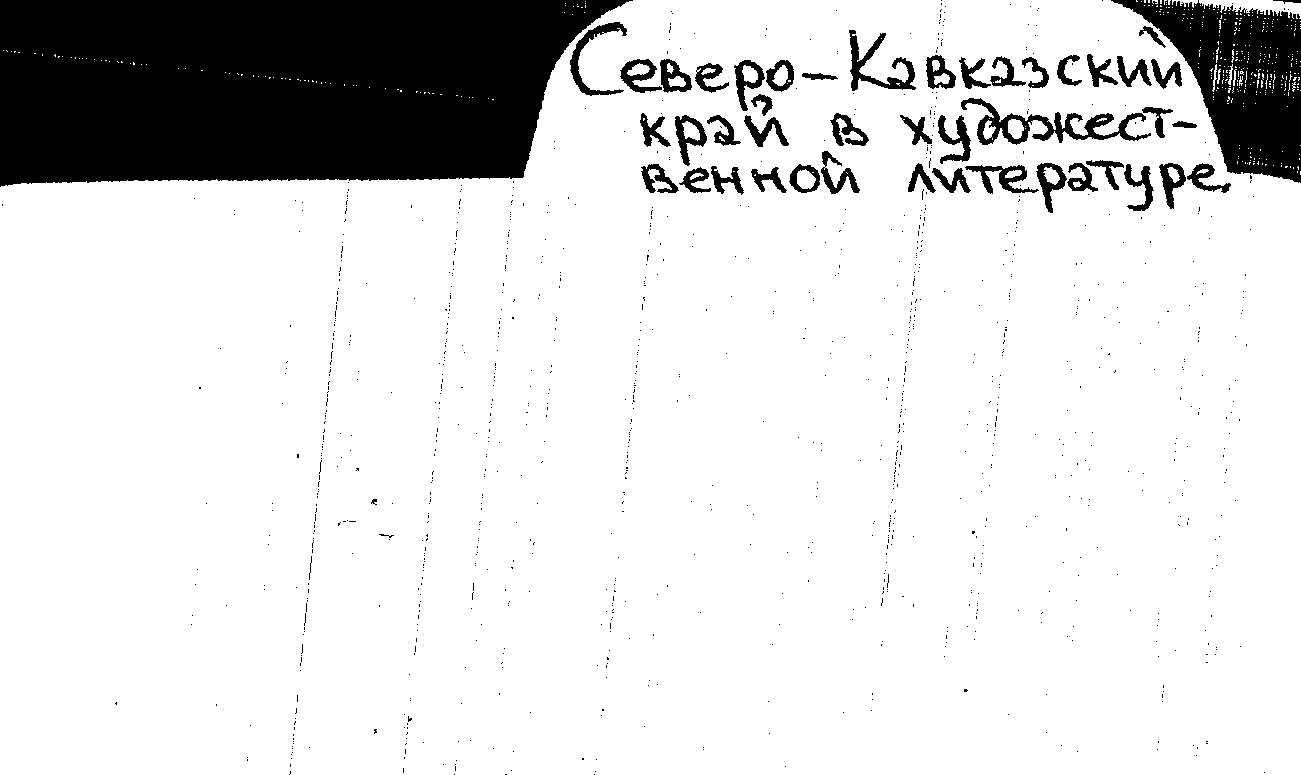 Северо-Кавказский
край в художест-
венной литературе.